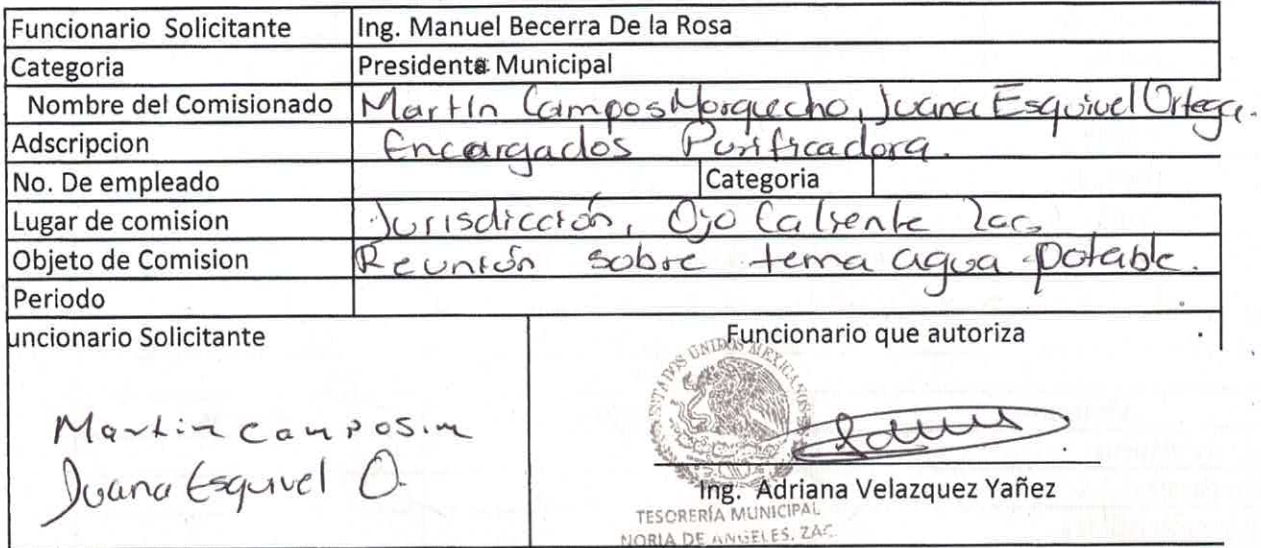 Funcionario Solicitante Ing. Manuel Becerra De la Rosa
Categoria Presidente Municipal
Nombre del Comisionado Martín Campos Morquecho, Juana Esquivel Ortega.
Adscripcion Encargados Purificadora.
No. De empleado Categoria
Lugar de comision Jurisdicción, Ojo Caliente Zac.
Objeto de Comision Reunión sobre tema agua potable.
Periodo
uncionario Solicitante Funcionario que autoriza
ESTADOS UNIDOS MEXICANOS
Martin campos m
Juana Esquivel O.
Ing. Adriana Velazquez Yañez
TESORERÍA MUNICIPAL
NORIA DE ANGELES, ZAC.